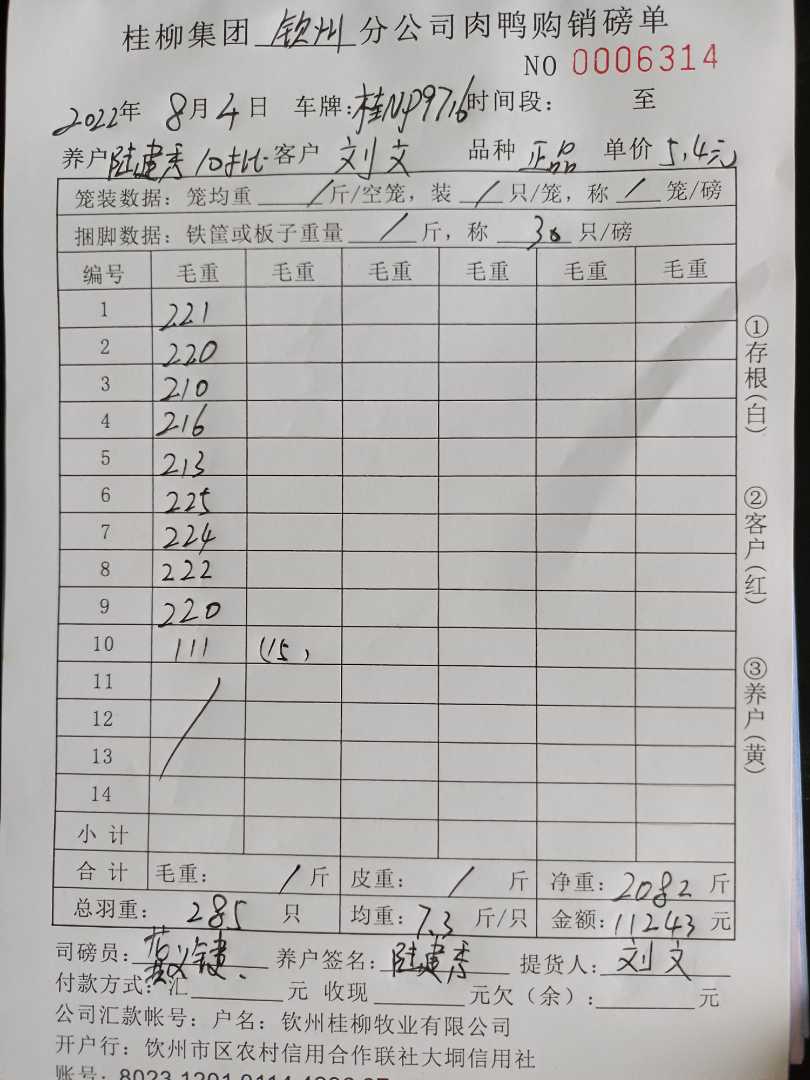 桂柳集团 钦州 分公司肉鸭购销磅单
NO 0006314
2022年 8月4日 车牌:桂NP9716 时间段: 至
养户 陆建秀 10批 客户 刘文 品种 正品 单价 5.4元
笼装数据: 笼均重 / 斤/空笼, 装 / 只/笼, 称 / 笼/磅
捆脚数据: 铁筐或板子重量 / 斤, 称 30 只/磅
编号 毛重 毛重 毛重 毛重 毛重 毛重
1 221
2 220
3 210
4 216
5 213
6 225
7 224
8 222
9 220
10 111 (15)
11
12
13
14
小计
合计 毛重: / 斤 皮重: / 斤 净重: 2082 斤
总羽重: 285 只 均重: 7.3 斤/只 金额: 11243 元
司磅员: 养户签名: 陆建秀 提货人: 刘文
付款方式: 汇 元 收现 元欠(余): 元
公司汇款帐号: 户名: 钦州桂柳牧业有限公司
开户行: 钦州市区农村信用合作联社大垌信用社
账号: 8023 1201 0114
①存根(白)
②客户(红)
③养户(黄)